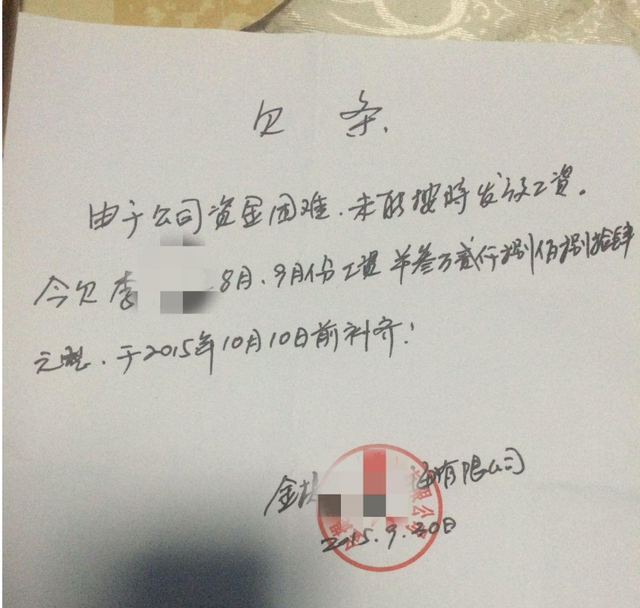 欠条
由于公司资金困难.未能按时发放工资。
今欠李 8月、9月份工资 叁万贰仟捌佰捌拾
元整、于2015年10月10日前补齐!
金 有限公司
2015.9.30日